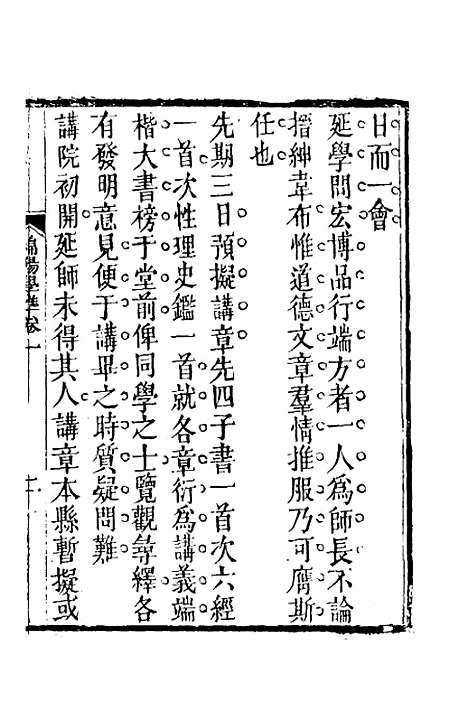 日而一會
延學問宏博品行端方者一人爲師長不論
搢紳韋布惟道德文章羣情推服乃可膺斯
任也
先期三日預擬講章先四子書一首次六經
一首次性理史鑑一首就各章衍爲講義端
楷大書榜于堂前俾同學之士覽觀尋繹各
有發明意見便于講畢之時質疑問難
講院初開延師未得其人講章本縣暫擬或
綿陽學準卷一